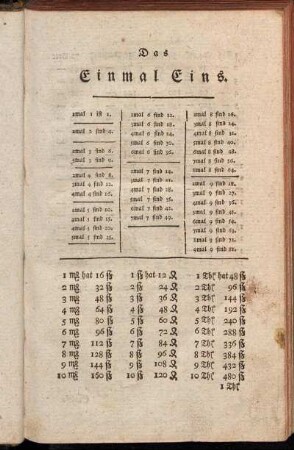 Das
Einmal Eins.
1mal 1 ist 1.
2mal 2 sind 4.
2mal 3 sind 6.
3mal 3 sind 9.
2mal 4 sind 8.
3mal 4 sind 12.
4mal 4 sind 16.
2mal 5 sind 10.
3mal 5 sind 15.
4mal 5 sind 20.
5mal 5 sind 25.
2mal 6 sind 12.
3mal 6 sind 18.
4mal 6 sind 24.
5mal 6 sind 30.
6mal 6 sind 36.
2mal 7 sind 14.
3mal 7 sind 21.
4mal 7 sind 28.
5mal 7 sind 35.
6mal 7 sind 42.
7mal 7 sind 49.
2mal 8 sind 16.
3mal 8 sind 24.
4mal 8 sind 32.
5mal 8 sind 40.
6mal 8 sind 48.
7mal 8 sind 56.
8mal 8 sind 64.
2mal 9 sind 18.
3mal 9 sind 27.
4mal 9 sind 36.
5mal 9 sind 45.
6mal 9 sind 54.
7mal 9 sind 63.
8mal 9 sind 72.
9mal 9 sind 81.
1 mß hat 16 ß 1 ß hat 12 ₰ 1 Thl hat 48 ß
2 mß 32 ß 2 ß 24 ₰ 2 Thl 96 ß
3 mß 48 ß 3 ß 36 ₰ 3 Thl 144 ß
4 mß 64 ß 4 ß 48 ₰ 4 Thl 192 ß
5 mß 80 ß 5 ß 60 ₰ 5 Thl 240 ß
6 mß 96 ß 6 ß 72 ₰ 6 Thl 288 ß
7 mß 112 ß 7 ß 84 ₰ 7 Thl 336 ß
8 mß 128 ß 8 ß 96 ₰ 8 Thl 384 ß
9 mß 144 ß 9 ß 108 ₰ 9 Thl 432 ß
10 mß 160 ß 10 ß 120 ₰ 10 Thl 480 ß
1 Thl